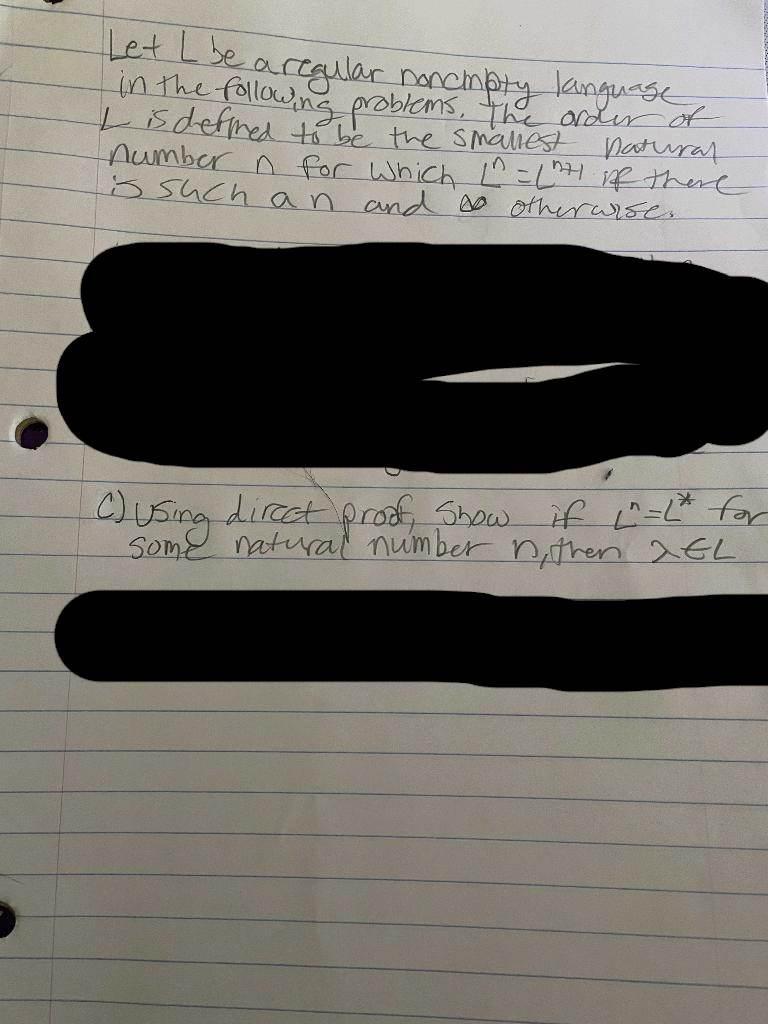 Let L be a regular nonempty language
in the following problems. The order of
L is defined to be the smallest natural
number n for which Lⁿ=Lⁿ⁺¹ if there
is such a n and ∞ otherwise.
C) Using direct proof, show if Lⁿ=L* for
some natural number n, then λ∈L